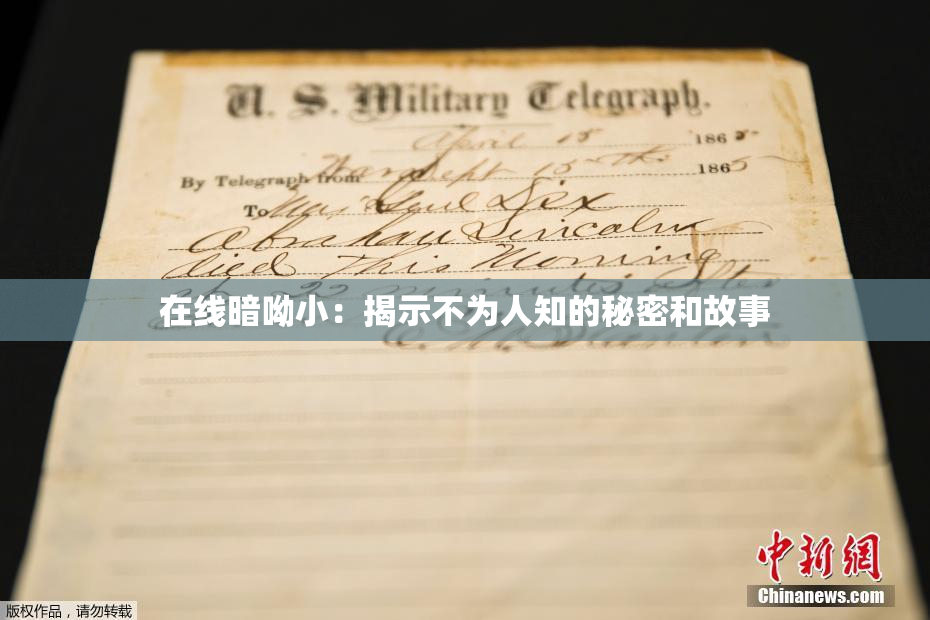 U. S. Military Telegraph.
April 15 1865
By Telegraph from War Dept 15th 1865
To Maj Genl Dix
Abraham Lincoln
died This Morning
at 22 minutes after
在线暗呦小：揭示不为人知的秘密和故事
E. M. Stanton
中新网
Chinanews.com
版权作品，请勿转载